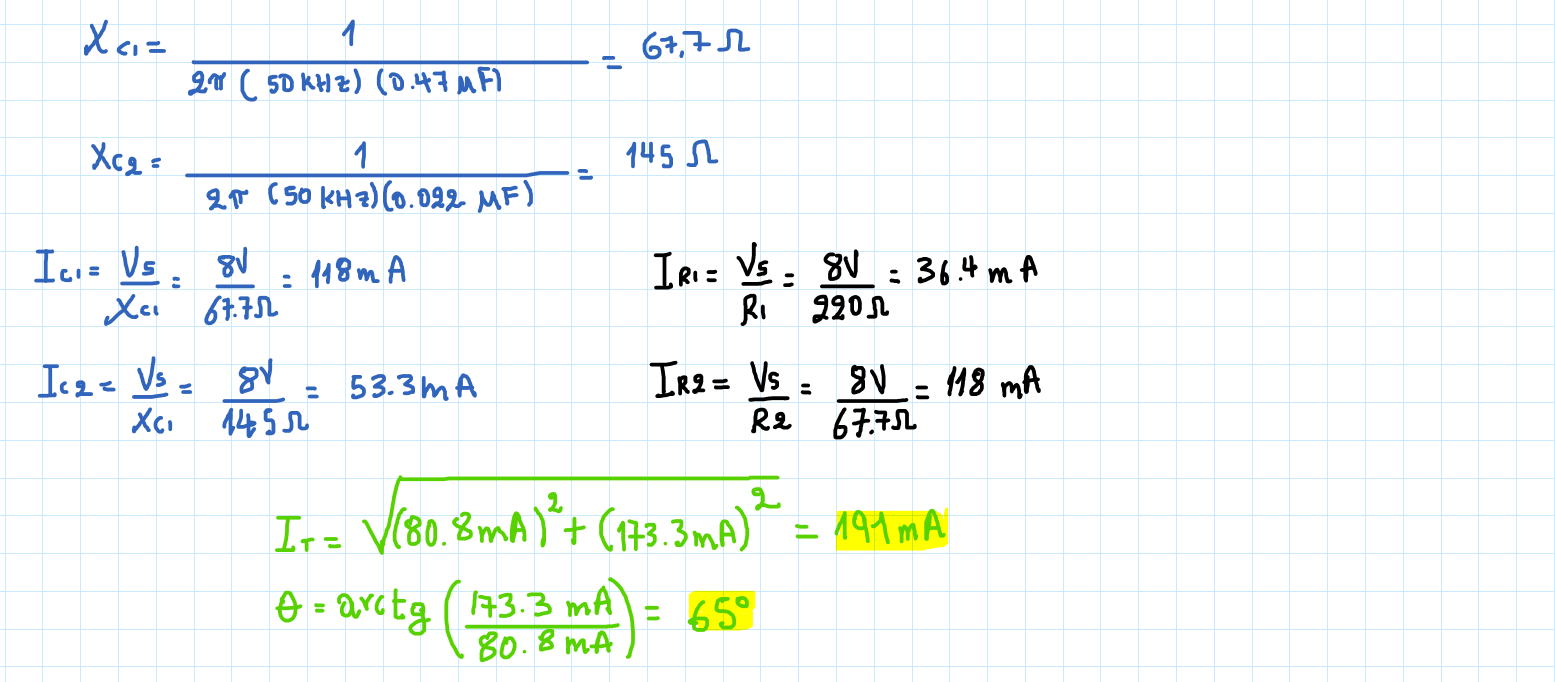 X_C1 = 1 / (2π (50 kHz) (0.47 μF)) = 67,7 Ω
X_C2 = 1 / (2π (50 kHz)(0.022 μF)) = 145 Ω
I_C1 = Vs / X_C1 = 8V / 67.7Ω = 118 mA
I_R1 = Vs / R1 = 8V / 220Ω = 36.4 mA
I_C2 = Vs / X_C1 = 8V / 145Ω = 53.3 mA
I_R2 = Vs / R2 = 8V / 67.7Ω = 118 mA
I_T = √((80.8 mA)² + (173.3 mA)²) = 191 mA
θ = arctg (173.3 mA / 80.8 mA) = 65°